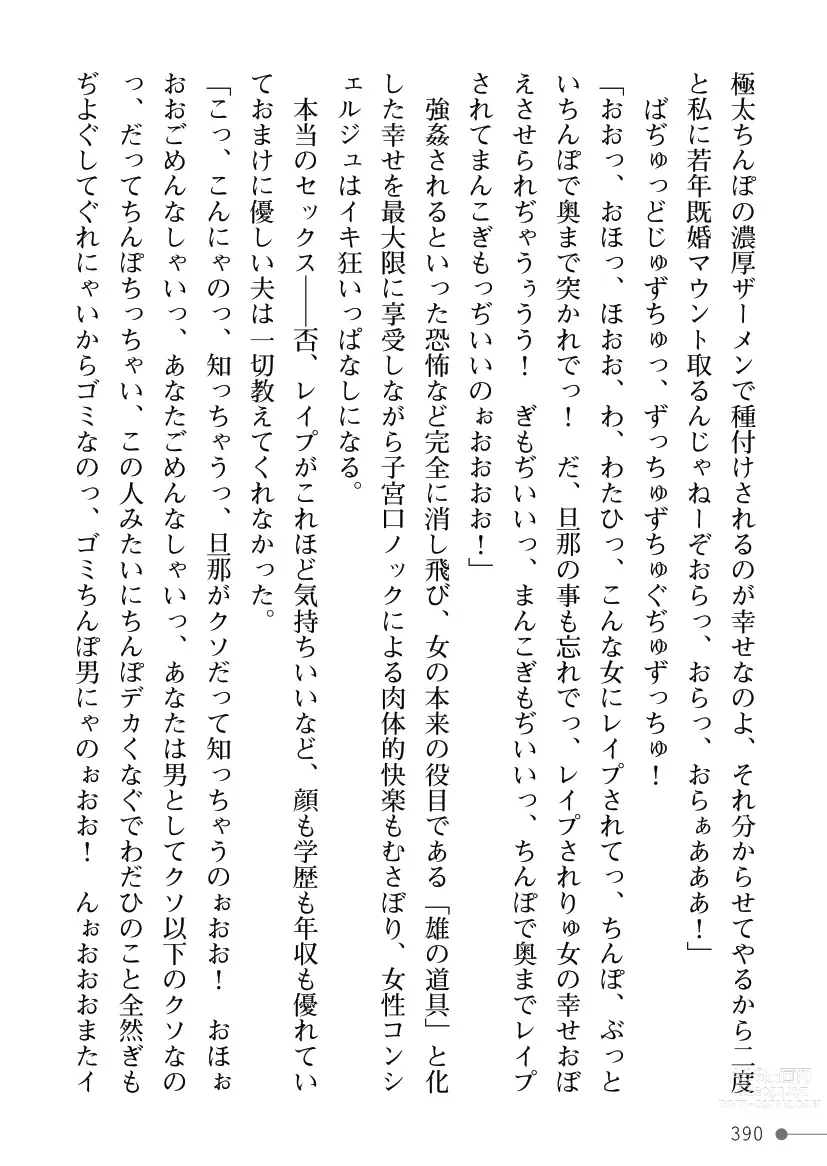 極太ちんぽの濃厚ザーメンで種付けされるのが幸せなのよ、それ分からせてやるから二度
と私に若年既婚マウント取るんじゃねーぞおらっ、おらっ、おらぁあああ！」
　ばぢゅっどじゅずちゅっ、ずっちゅずちゅぐぢゅずっちゅ！
「おおっ、おほっ、ほおお、わ、わたひっ、こんな女にレイプされてっ、ちんぽ、ぶっと
いちんぽで奥まで突かれでっ！　だ、旦那の事も忘れでっ、レイプされりゅ女の幸せおぼ
えさせられぢゃうぅうう！　ぎもぢいいっ、まんこぎもぢいいっ、ちんぽで奥までレイプ
されてまんこぎもっぢいいのぉおおおお！」
　強姦されるといった恐怖など完全に消し飛び、女の本来の役目である「雄の道具」と化
した幸せを最大限に享受しながら子宮口ノックによる肉体的快楽もむさぼり、女性コンシ
ェルジュはイキ狂いっぱなしになる。
　本当のセックス――否、レイプがこれほど気持ちいいなど、顔も学歴も年収も優れてい
ておまけに優しい夫は一切教えてくれなかった。
「こっ、こんにゃのっ、知っちゃうっ、旦那がクソだって知っちゃうのぉおお！　おほぉ
おおごめんなしゃいっ、あなたごめんなしゃいっ、あなたは男としてクソ以下のクソなの
っ、だってちんぽちっちゃい、この人みたいにちんぽデカくなぐでわだひのこと全然ぎも
ぢよぐしてぐれにゃいからゴミなのっ、ゴミちんぽ男にゃのぉおお！　んぉおおおまたイ
390